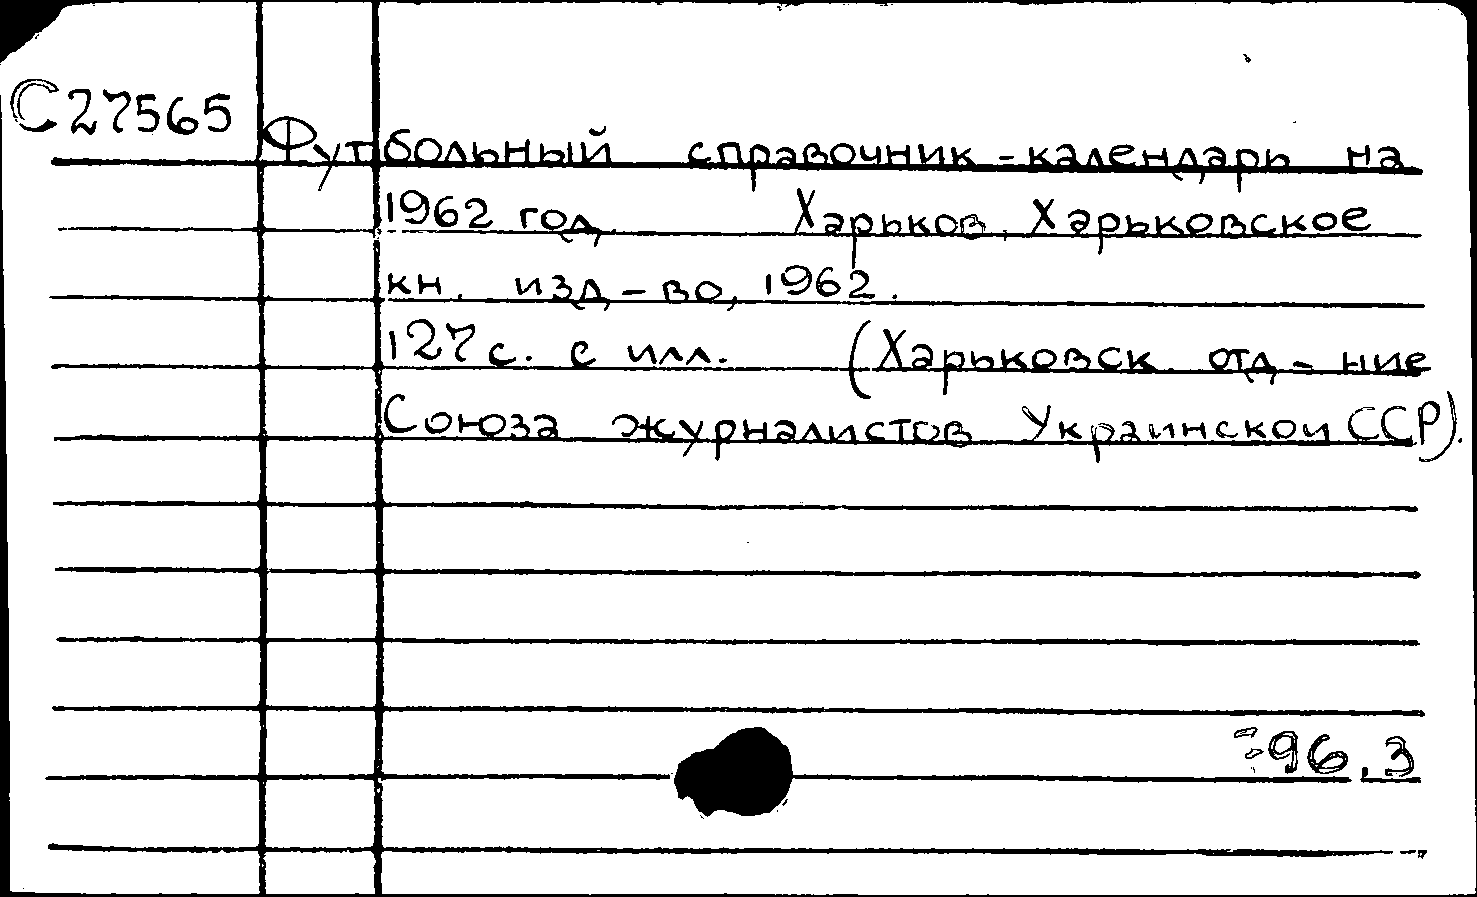 С27565
Футбольный справочник-календарь на
1962 год. Харьков, Харьковское
кн. изд-во, 1962.
127 с. с илл. (Харьковск. отд-ние
Союза журналистов Украинской ССР).
96.3